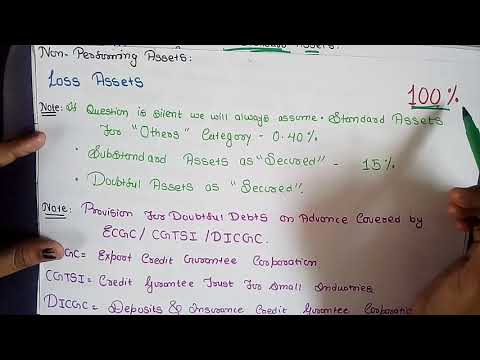 Standard Assets.
Non-Performing Assets:
Loss Assets 100%
Note: If Question is silent we will always assume • Standard Assets
For "Others" Category - 0.40%
• Substandard Assets as "Secured" - 15%
• Doubtful Assets as "Secured".
Note: Provision For Doubtful Debts on Advance Covered by
ECGC/ CGTSI /DICGC.
GC= Export Credit Gurantee Corporation
CGTSI= Credit Gurantee Trust For Small Industries
DICGC= Deposits & Insurance Credit Gurantee Corporatio